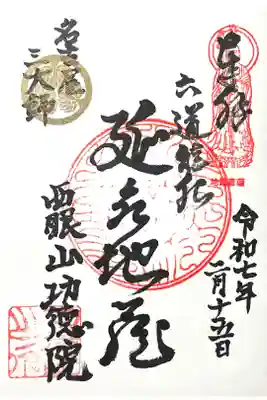 奉拝
六道能化
延命地蔵
三大師
眼山功徳院
令和七年
二月十五日